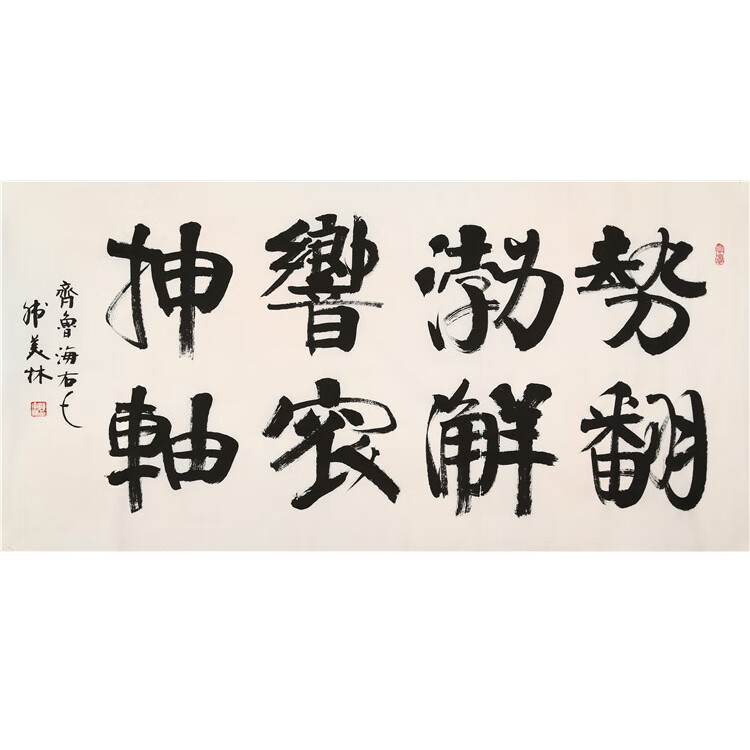 勢翻
渤澥
響
坤軸
齊魯海右
美林